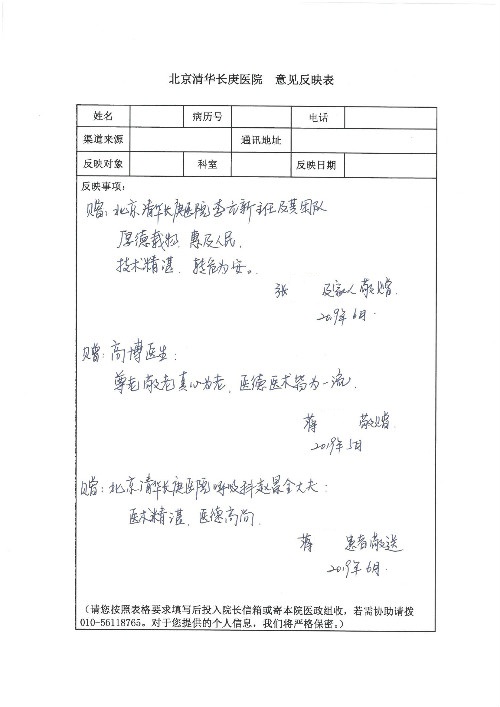 北京清华长庚医院 意见反映表
姓名 病历号 电话
渠道来源 通讯地址
反映对象 科室 反映日期
反映事项：
赠：北京清华长庚医院李元新主任及其团队
厚德载物、惠及人民、
技术精湛、转危为安。
张 及家人敬赠
2019年6月.
赠：高博医生：
尊老敬老真心为老、医德医术皆为一流.
蒋 敬赠
2019年5月
赠：北京清华长庚医院呼吸科赵景全大夫：
医术精湛、医德高尚
蒋 患者敬送
2019年6月.
（请您按照表格要求填写后投入院长信箱或寄本院医政组收，若需协助请拨
010-56118765。对于您提供的个人信息，我们将严格保密。）